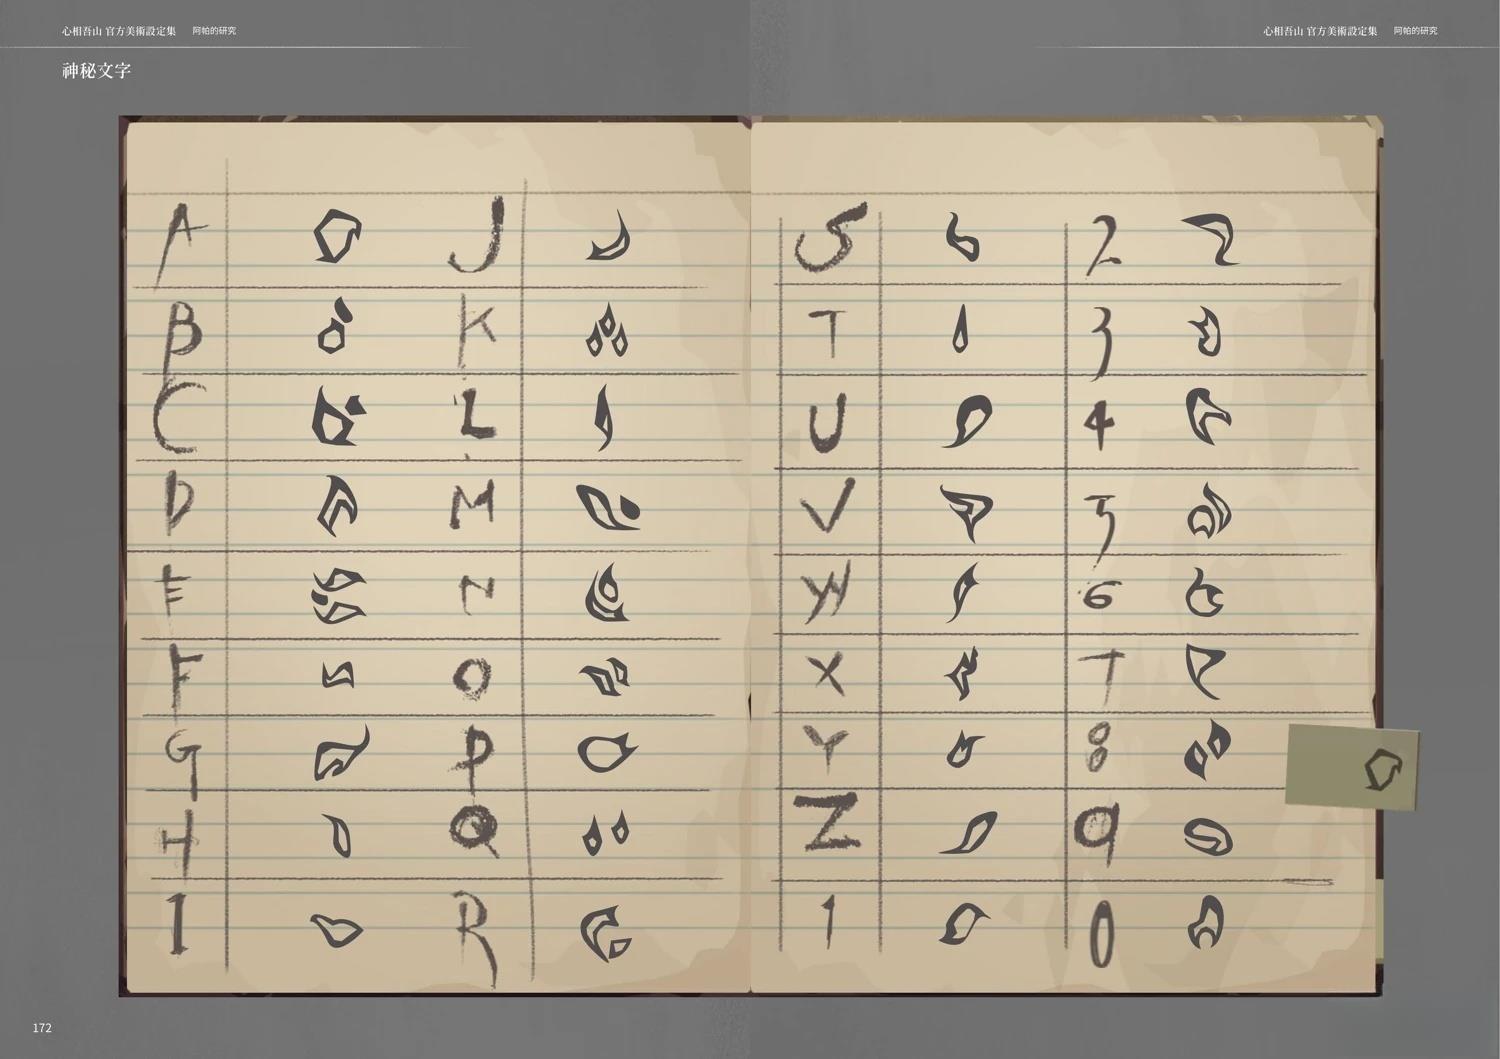 心相吾山 官方美術設定集 阿帕的研究
心相吾山 官方美術設定集 阿帕的研究
神秘文字
A J
B K
C L
D M
E N
F O
G P
H Q
I R
S 2
T 3
U 4
V 5
W 6
X 7
Y 8
Z 9
1 0
172